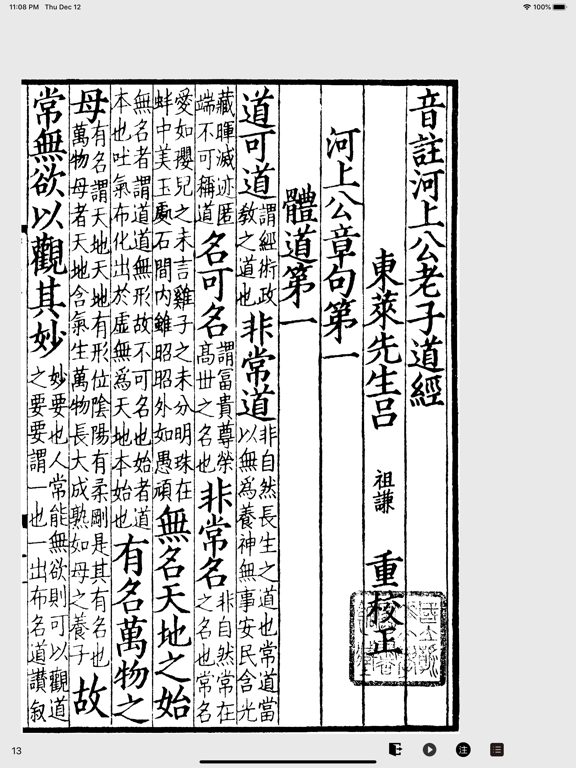 11:08 PM Thu Dec 12 100%
音註河上公老子道經
東萊先生呂 祖謙 重校正
河上公章句第一
體道第一
道可道謂經術政教之道也非常道非自然長生之道也常道當以無爲養神無事安民含光
藏暉滅迹匿端不可稱道名可名謂冨貴尊榮髙丗之名也非常名非自然常在之名也常名
愛如孾兒之未言雞子之未分明珠在蚌中美玉處石間内雖昭昭外如愚頑無名天地之始
無名者謂道道無形故不可名也始者道本也吐氣布化出於虛無爲天地本始也有名萬物之
母有名謂天地天地有形位陰陽有柔剛是其有名也萬物母者天地含氣生萬物長大成熟如母之養子故
常無欲以觀其妙妙要也人常能無欲則可以觀道之要要謂一也一出布名道讃叙
13
注